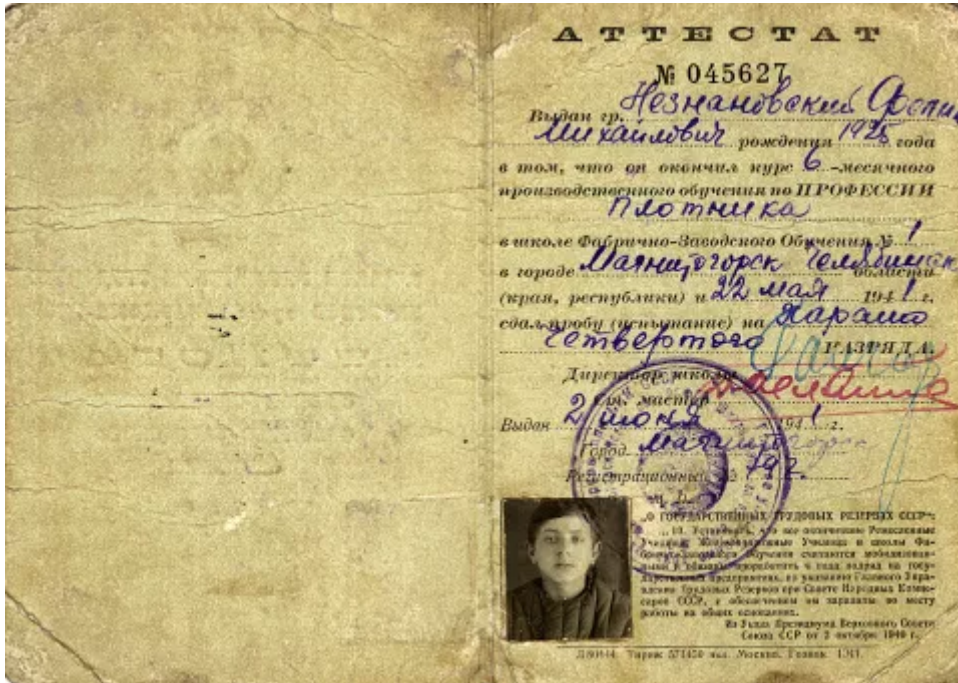 АТТЕСТАТ
№ 045627
Выдан гр. Незнановский
Михайлович рождения 1925 года
в том, что он окончил курс 6-месячного
производственного обучения по ПРОФЕССИИ
Плотника
в школе Фабрично-Заводского Обучения № 1
в городе Магнитогорск Челябинск области
(края, республики) и 22 мая 1941 г.
сдал пробу (испытание) на Харашо
Четвертого РАЗРЯДА.
Директор школы
Ст. мастер
Выдан 2 июня 1941 г.
Город Магнитогорск
Регистрационный № 792.
„О ГОСУДАРСТВЕННЫХ ТРУДОВЫХ РЕЗЕРВАХ СССР“:
„... 10. Установить, что все окончившие Ремесленные
Училища, Железнодорожные Училища и школы Фа-
брично-Заводского Обучения считаются мобилизован-
ными и обязаны проработать 4 года подряд на госу-
дарственных предприятиях, по указанию Главного Упра-
вления Трудовых Резервов при Совете Народных Комис-
саров СССР, с обеспечением им зарплаты по месту
работы на общих основаниях.
Из Указа Президиума Верховного Совета
Союза ССР от 2 октября 1940 г.
Тираж экз. Москва. Гознак. 1941.